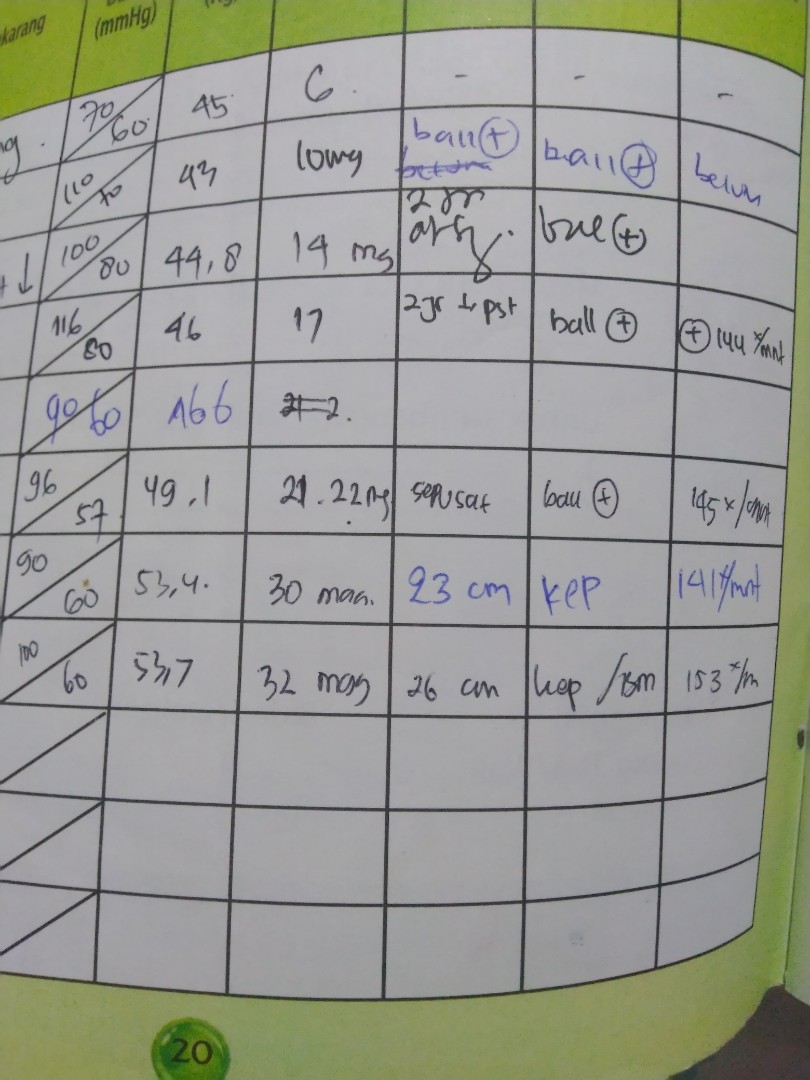 karang (mmHg)
70/60 45 6. - - -
110/70 43 10 mg ball (+) ball (+) belum
100/80 44,8 14 mg 2 jr ball (+)
↓
116/80 46 17 2 jr ↓ pst ball (+) (+) 144 x/mnt
90/60 166
96/57 49.1 21.22 mg sepusat ball (+) 145 x/mnt
90/60 53,4. 30 23 cm kep 141 x/mnt
100/60 53,7 32 26 cm kep 153 x/m
20